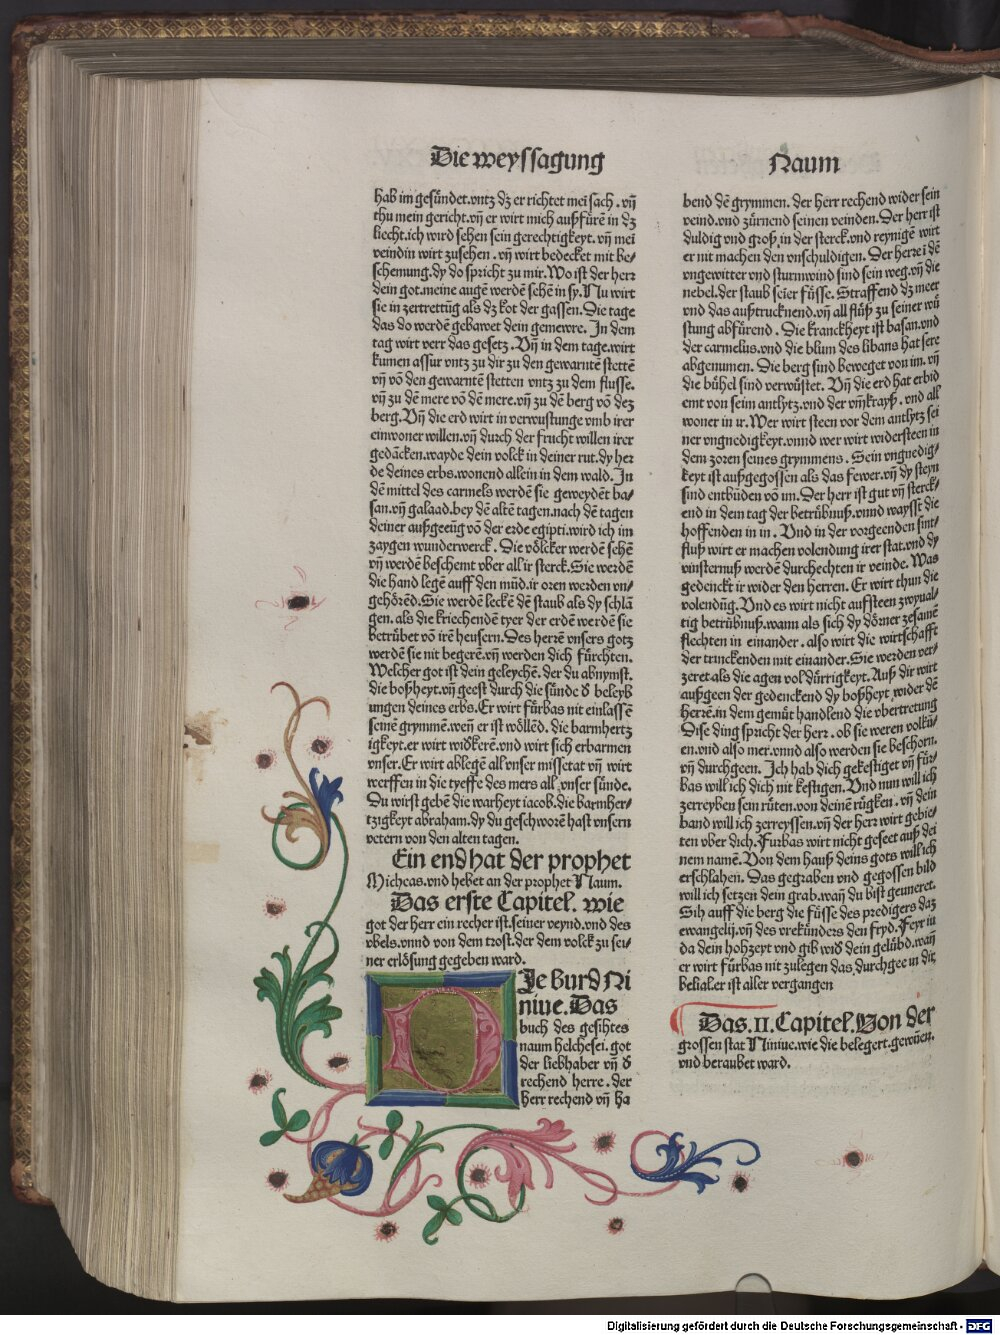 Die weyssagung
Naum
hab im gesündet.vntz dz er richtet mei sach . vñ
thu mein gericht.vñ er wirt mich außfürē in dz
liecht.ich wird sehen sein gerechtigkeyt.vñ mei
veindin wirt zusehen . vñ wirt bedecket mit be/
schemung.dy do spricht zu mir.Wo ist der herr
dein got.meine augē werdē sehē in sy.Nu wirt
sie in zertrettūg als dz kot der gassen.Die tage
das do werdē gebawet dein gemewre. In dem
tag wirt verr das gesetz . Vñ in dem tage.wirt
kumen assur vntz zu dir zu den gewarntē stettē
vñ vō den gewarntē stetten vntz zu dem flusse.
vñ zu dē mere vō dē mere.vñ zu dē berg vō dez
berg.Vñ die erd wirt in verwustunge vmb irer
einwoner willen.vñ durch der frucht willen irer
gedācken.wayde dein volck in deiner rut.dy her
de deines erbs.wonend allein in dem wald. In
dē mittel des carmels werdē sie geweydēt ba/
san.vñ galaad.bey dē altē tagen.nach dē tagen
deiner außgeeūg vō der erde egipti.wird ich im
zaygen wunderwerck . Die völcker werdē sehē
vñ werdē beschemt vber all ir sterck.Sie werdē
die hand legē auff den mūd.ir oren werden vn/
gehörēd.Sie werdē leckē dē staub als dy schlā
gen.als die kriechendē tyer der erdē werdē sie
betrübet vō irē heusern.Des herrē vnsers gotz
werdē sie nit begerē.vñ werden dich fürchten.
Welcher got ist dein geleychē.der du abnymst.
die boßheyt.vñ geest durch die sünde d beleyb
ungen deines erbs.Er wirt fürbas nit einlassē
seinē grymmē.weñ er ist wöllēd. die barmhertz
igkeyt.er wirt widkerē.vnd wirt sich erbarmen
vnser.Er wirt ablegē all vnser missetat vñ wirt
werffen in die tyeffe des mers all vnser sünde.
Du wirst gebē die warheyt iacob.die barmher/
tzigkeyt abraham.dy du geschworē hast vnsern
vetern von den alten tagen.
Ein end hat der prophet
Micheas.vnd hebet an der prophet Naum.
Das erste Capitel. wie
got der herr ein recher ist.seiner veynd.vnd des
vbels.vnnd von dem trost.der dem volck zu sei/
ner erlösung gegeben ward.
DIe Burd Ni
niue. Das
buch des gesihtes
naum helchesei. got
der liebhaber vñ d
rechend herre . der
herr rechend vñ ha
bend dē grymmen. der herr rechend wider sein
veind.vnd zürnend seinen veinden.Der herr ist
duldig vnd groß in der sterck.vnd reynigē wirt
er nit machen den vnschuldigen. Der herre i dē
vngewitter vnd sturmwind sind sein weg.vñ die
nebel.der staub seier füsse. Straffend dz meer
vnd das außtrucknend.vñ all flüß zu seiner wü
stung abfürend . Die kranckheyt ist basan.vnd
der carmelus.vnd die blum des libans hat sere
abgenumen. Die berg sind beweget von im. vñ
die bühel sind verwüstet. Vñ die erd hat erbid
emt von seim antlytz.vnd der vm̄krayß . vnd all
woner in ir.Wer wirt steen vor dem antlytz sei
ner vngnedigkeyt.vnnd wer wirt widersteen in
dem zoren seines grymmens. Sein vngnedig/
keyt ist außgegossen als das fewer.vñ dy steyn
sind entbūden vō im.Der herr ist gut vñ sterck/
end in dem tag der betrübnuß.vnnd waysst die
hoffenden in in . Vnd in der vorgeenden sint/
fluß wirt er machen volendung irer stat.vnd dy
vinsternuß werdē durchechten ir veinde. Was
gedenckt ir wider den herren. Er wirt thun die
volendūg. Vnd es wirt nicht aufsteen zwyual/
tig betrübnuß.wann als sich dy dörner zesamē
flechten in einander . also wirt die wirtschafft
der trinckenden mit einander.Sie werden ver/
zeret als die agen vol dürrigkeyt. Auß dir wirt
außgeen der gedenckend dy boßheyt wider dē
herrē.in dem gemüt handlend die vbertretung
Dise ding spricht der herr . ob sie weren volkū/
en.vnd also mer.vnnd also werden sie beschorn.
vñ durchgeen. Ich hab dich gekestiget vñ für/
bas wilk ich dich nit kestigen. Vnd nun will ich
zerreyben sein rüten.von deinē rügken . vñ dein
band will ich zerreyssen.vñ der herr wirt gebie/
ten vber dich.Furbas wirt nicht geseet auß dei
nem namē. Von dem hauß deins gots will ich
erschlahen. Das gegraben vnd gegossen bild
will ich setzen dem grab.wañ du bist geuneret.
Sih auff die berg die füsse des predigers daz
ewangelij.vñ des verkünders den fryd. Feyr iu
da dein hohzeyt vnd gib wid dein gelübd.wañ
er wirt fürbas nit zulegen das durchgee in dir
belial.er ist aller vergangen
Das.II.Capitel.Von der
grossen stat Niniue.wie die belegert.gewūen.
vnd beraubet ward.
Digitalisierung gefördert durch die Deutsche Forschungsgemeinschaft - DFG